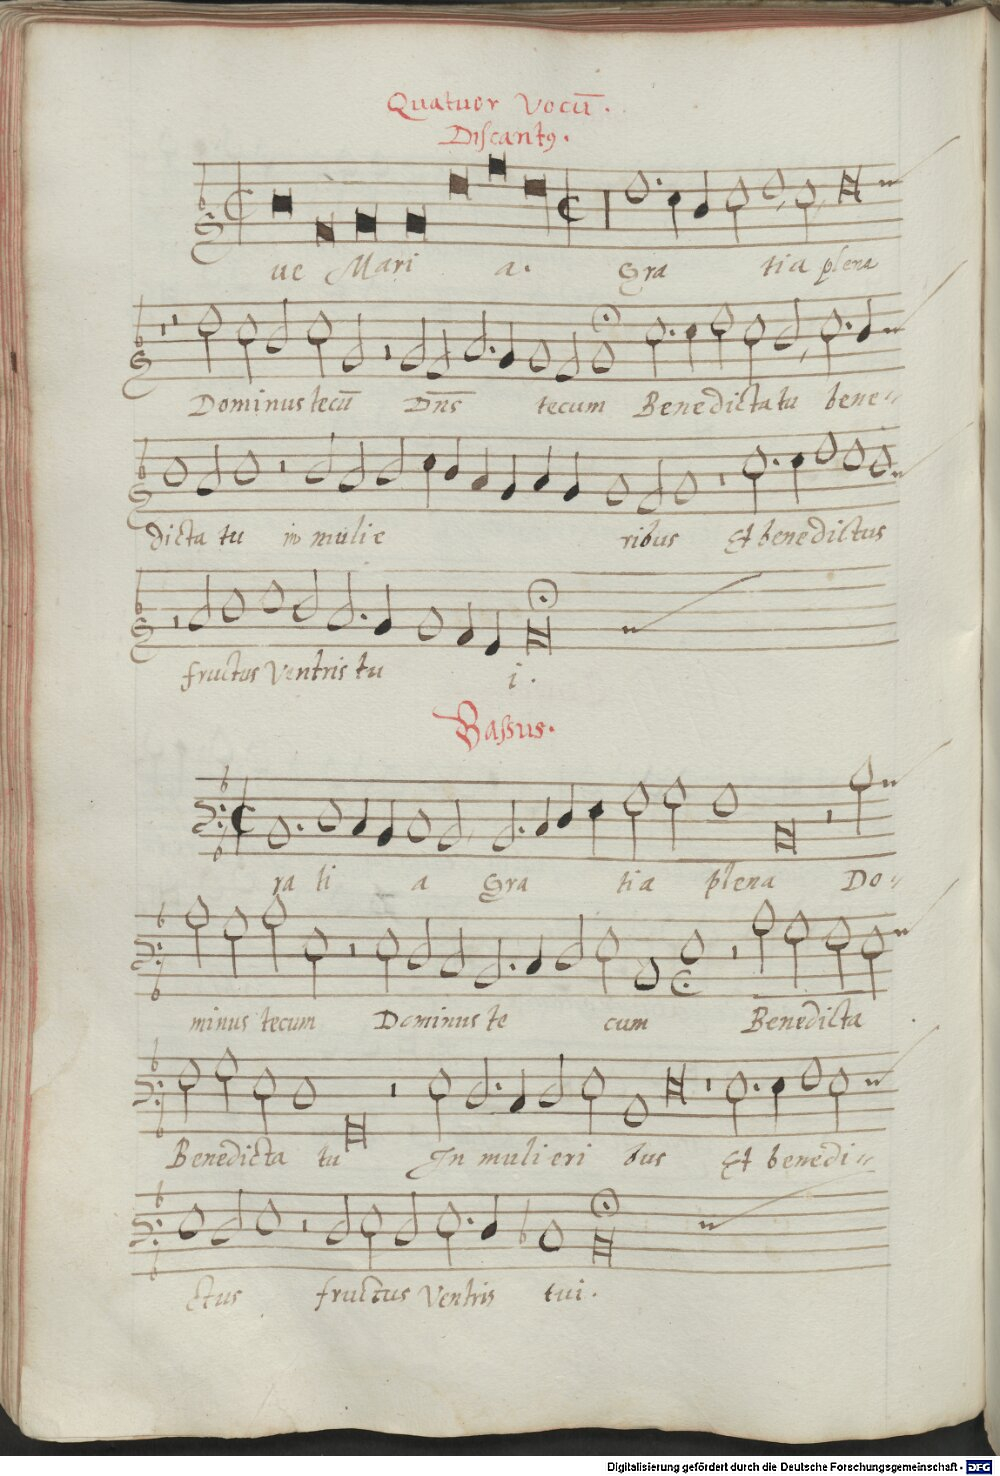 Quatuor Vocū.
Discantꝯ.
ue Mari a. Gra tia plena
Dominus tecū Dn̄s tecum Benedicta tu bene-
dicta tu in mulie ribus Et benedictus
fructus Ventris tu i.
Bassus.
ra ti a Gra tia plena Do-
minus tecum Dominus te cum Benedicta
Benedicta tu In mulieri bus Et benedi-
ctus fructus Ventris tui.
Digitalisierung gefördert durch die Deutsche Forschungsgemeinschaft - DFG